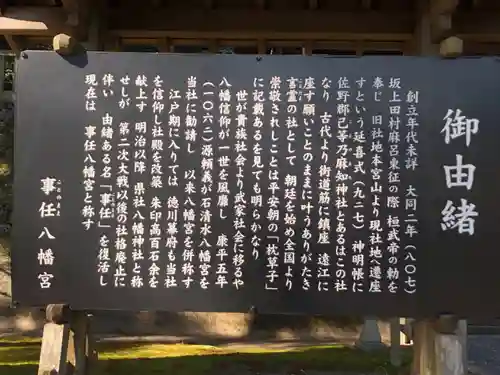 御由緒
創立年代未詳 大同二年(八〇七)
坂上田村麻呂東征の際 桓武帝の勅を
奉じ 旧社地本宮山より現社地へ遷座
すという延喜式(九二七) 神明帳に
佐野郡己等乃麻知神社とあるはこの社
なり 古代より街道筋に鎮座 遠江に
座す願いことのままに叶うありがたき
言霊の社として 朝廷を始め全国より
崇敬されしことは平安朝の「枕草子」
に記載あるを見ても明らかなり
世が貴族社会より武家社会に移るや
八幡信仰が一世を風靡し 康平五年
(一〇六二)源頼義が石清水八幡宮を
当社に勧請し 以来八幡宮を併称す
江戸期に入りては 徳川幕府も当社
を信仰し社殿を改築 朱印高百石余を
献上す 明治以降 県社八幡神社と称
せしが 第二次大戦以後の社格廃止に
伴い 由緒ある名「事任」を復活し
現在は 事任八幡宮と称す
事任八幡宮
ことのまま